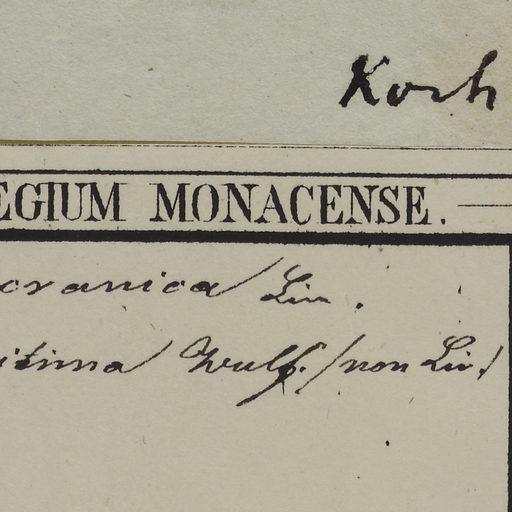 Koch
EGIUM MONACENSE.
cranica Lin.
itima Wulf. /non Lin./